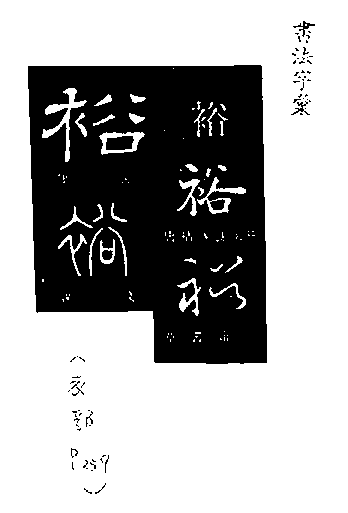 書法字彙
裕
裕
裕
裕
裕
(衣部P259)